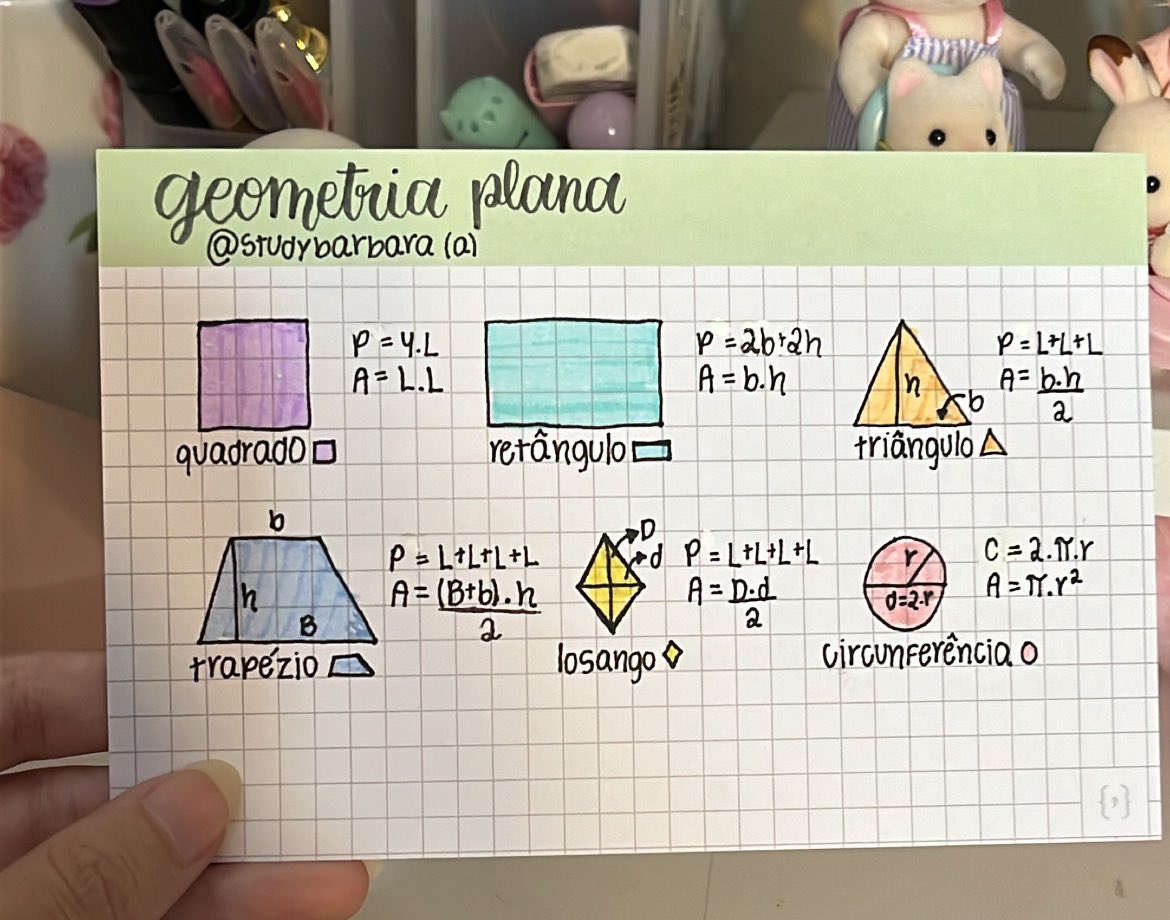 geometria plana
@studybarbara (a)
P = 4.L
A = L.L
quadrado
P = 2b+2h
A = b.h
retângulo
h
b
P = L+L+L
A = b.h
2
triângulo
b
h
B
P = L+L+L+L
A = (B+b).h
2
trapézio
D
d
P = L+L+L+L
A = D.d
2
losango
r
d=2.r
C = 2.π.r
A = π.r²
circunferência
{,}